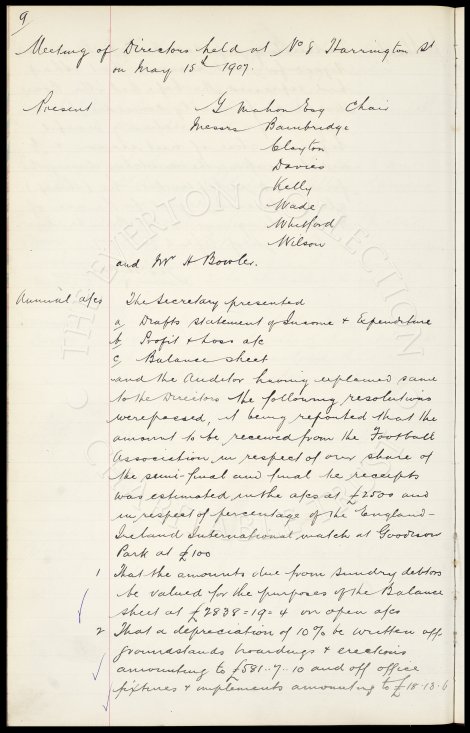 9
Meeting of Directors held at No 8 Harrington St
on May 15th 1907.
Present G Mahon Esq Chair
Messrs Bainbridge
Clayton
Davies
Kelly
Wade
Whitford
Wilson
and Mr H Bowler.
Annual a/cs The Secretary presented
a/ Drafts statement of Income & Expenditure
b/ Profit & Loss a/c
c/ Balance sheet
and the Auditor having explained same
to the Directors the following resolutions
were passed, it being reported that the
amount to be received from the Football
Association in respect of our share of
the semi-final and final tie receipts
was estimated in the a/cs at £2500 and
in respect of percentage of the England-
Ireland International match at Goodison
Park at £100
1 That the amounts due from sundry debtors
be valued for the purposes of the Balance
sheet at £2838=19=4 on open a/cs
2 That a depreciation of 10% be written off
groundstands hoardings & erections
amounting to £581..7..10 and off office
fixtures & implements amounting to £18.13.6
THE EVERTON COLLECTION